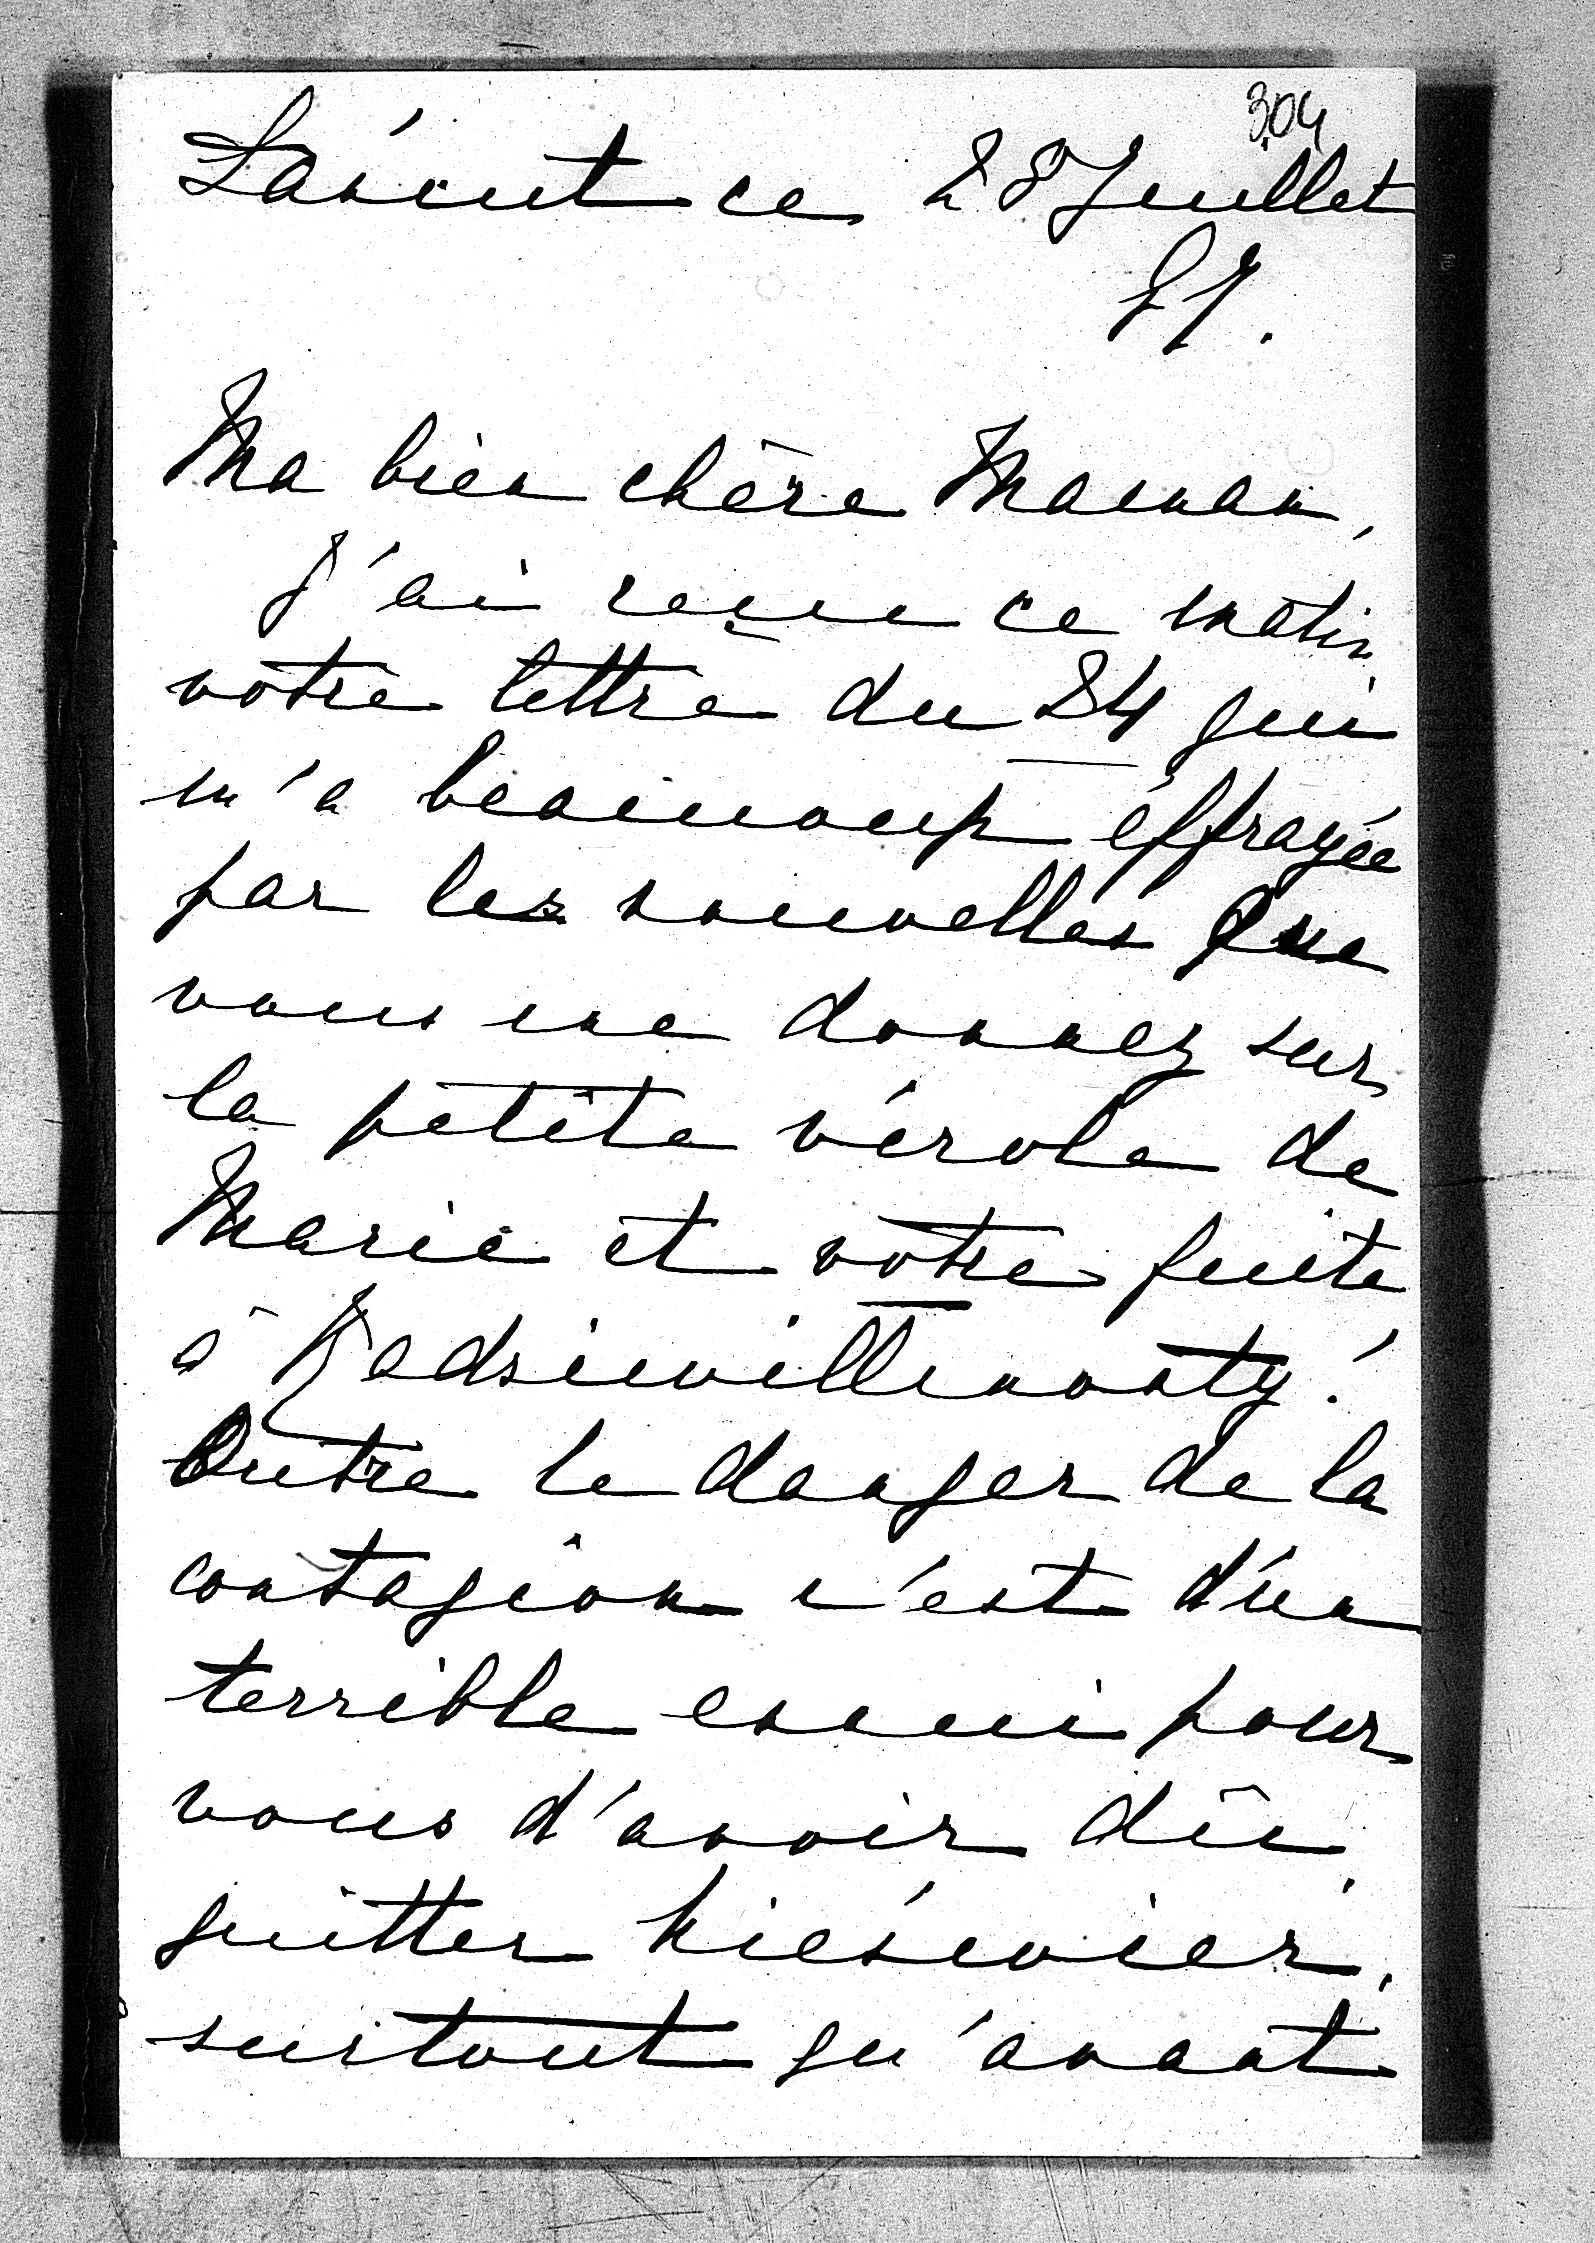 304
Łańcut ce 28 Juillet
87.
Ma bien chère Maman,
J'ai reçue ce matin
votre lettre du 24 qui
m'a beaucoup éffrayée
par les nouvelles que
vous me donnez sur
la petite vérole de
Marie et votre fuite
à Radziwillimonty!
Outre le danger de la
contagion c'est d'un
terrible ennui pour
vous d'avoir dû
quitter Nieświez,
surtout qu'avant